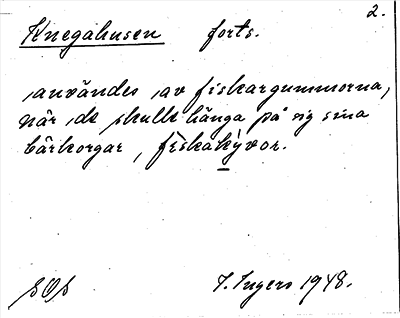 2.
Knegahusen forts.
användes av fiskargummorna,
när de skulle hänga på sig sina
bärkorgar, fìskakỳvor.
SOS
I. Ingers 1948.